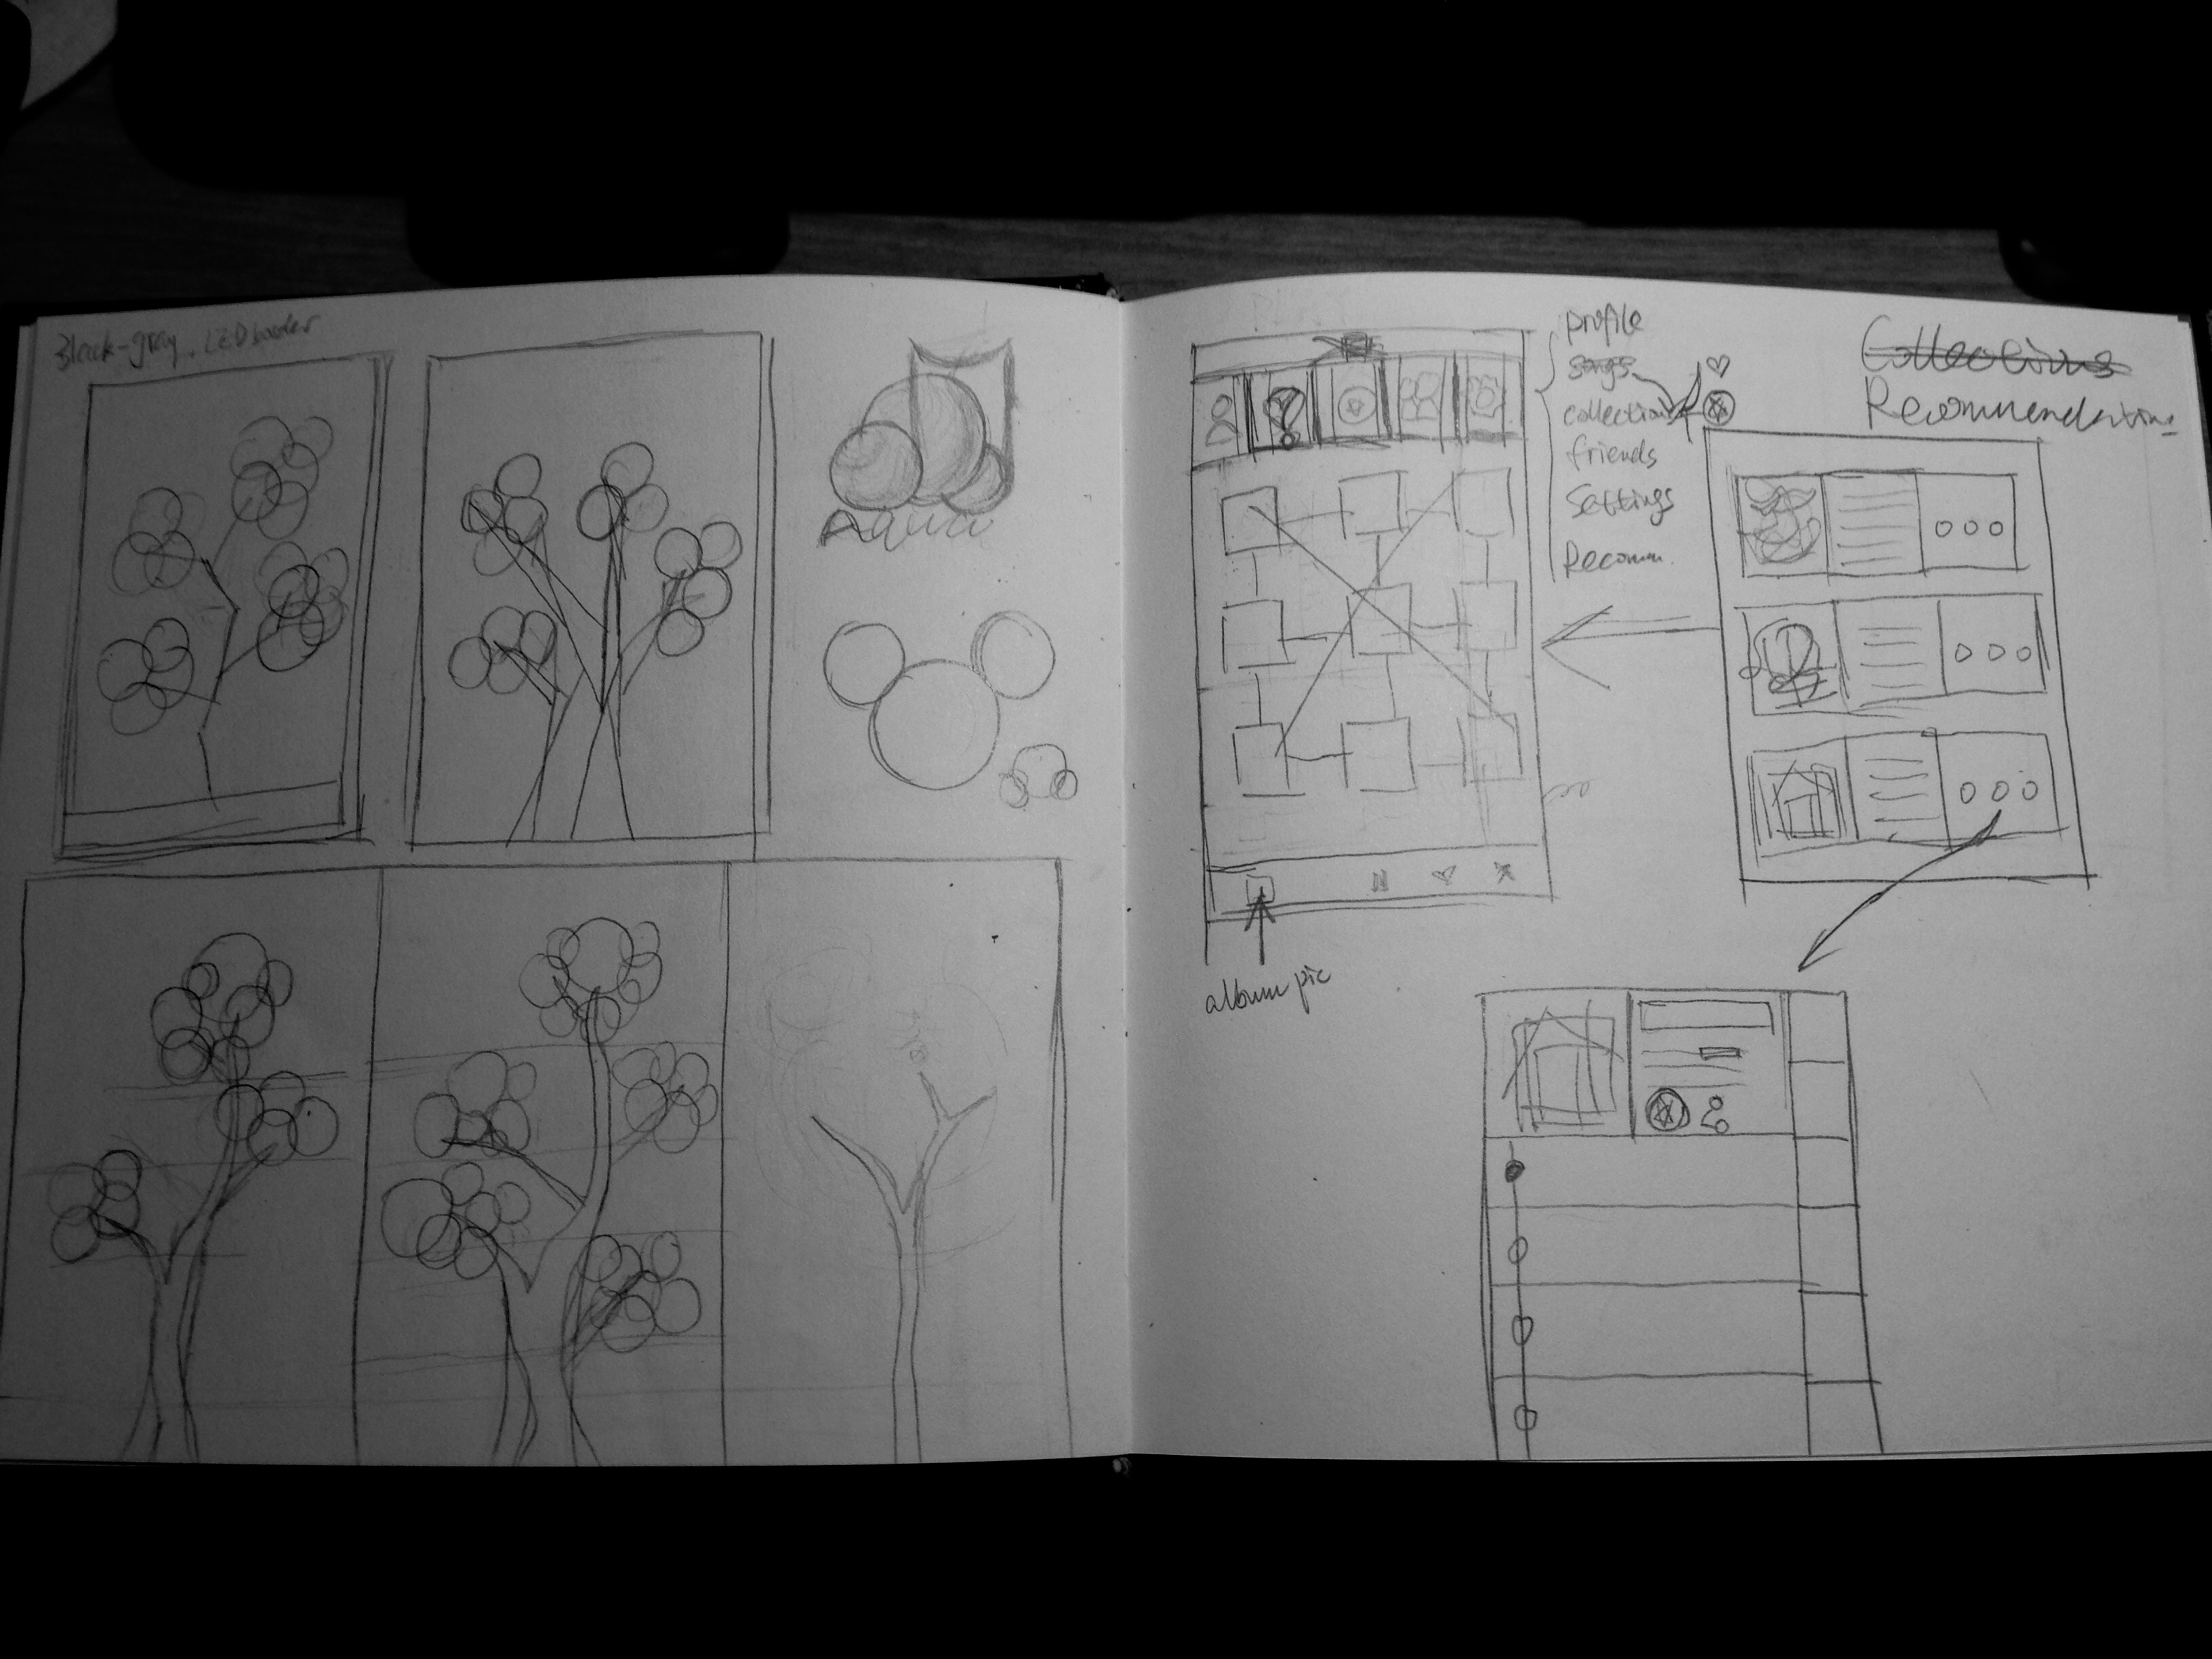 Black-gray. LED border
Aqua
profile
songs
collection
friends
Settings
Recomm.
Collections
Recommendations
album pic